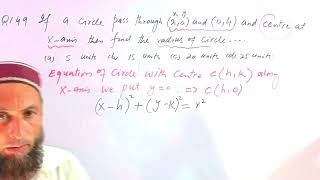 Q149 If a circle pass through (2,0) and (0,4) and centre at
x-axis then find the radius of circle....
(a) 5 units (b) 15 units (c) 20 units (d) 25 units
Equation of circle with centre C(h,k) along
x-axis we put y=0 ⇒ C(h,0)
(x-h)²+(y-k)²=r²